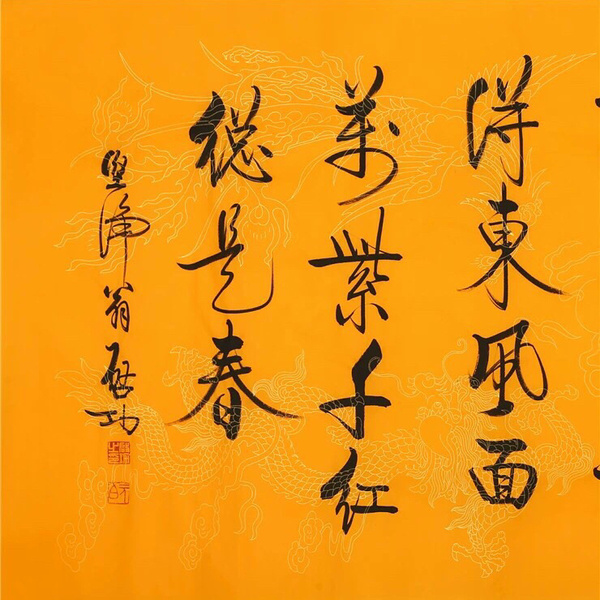 得東風面
萬紫千紅
總是春
堅淨翁啟功